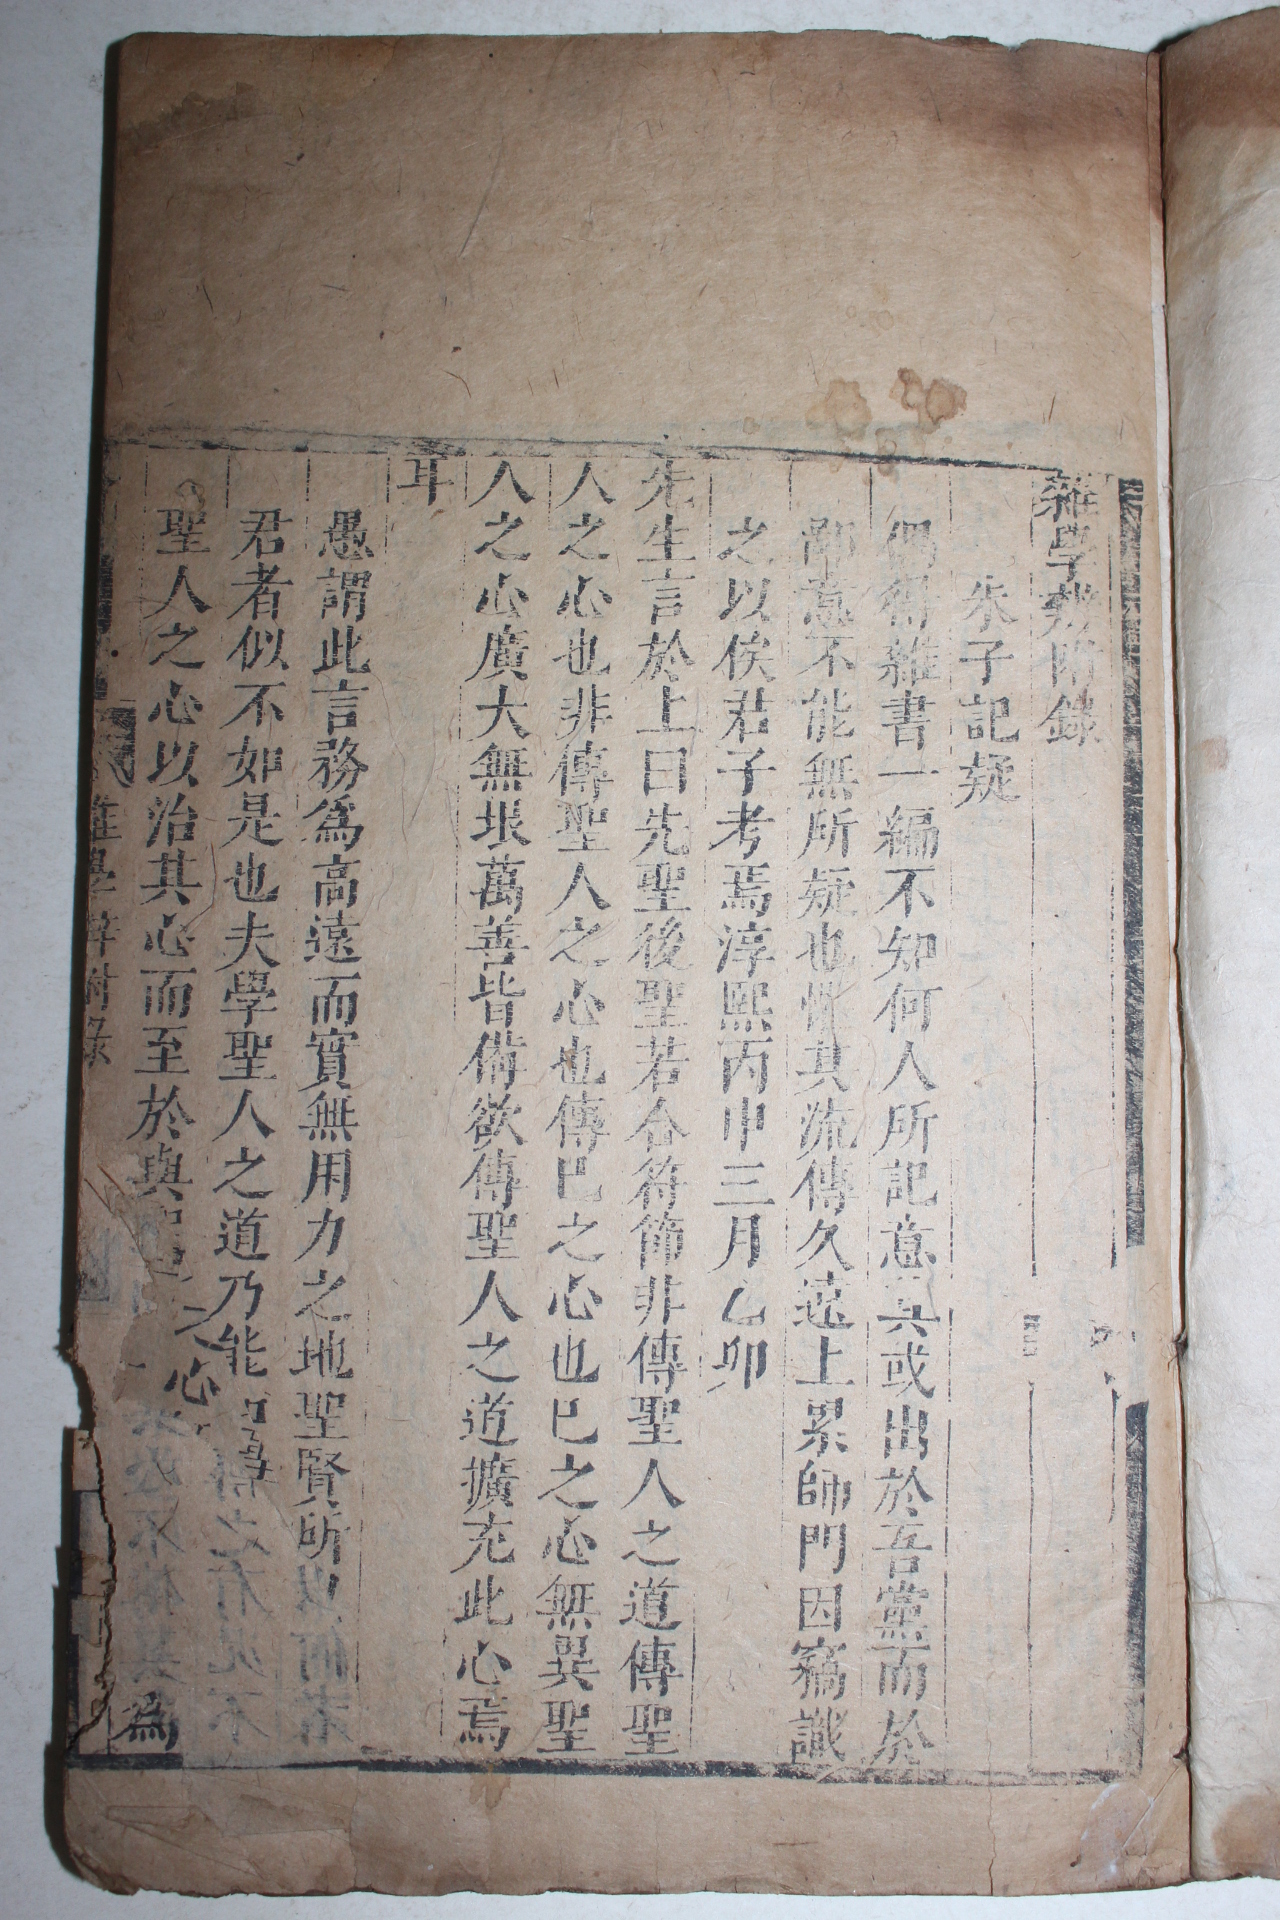 雜學辨附錄
朱子記疑
偶得雜書一編不知何人所記意其或出於吾黨而於
鄙意不能無所疑也懼其流傳久遠上累師門因竊識
之以俟君子考焉淳熙丙申三月乙卯
先生言於上曰先聖後聖若合符節非傳聖人之道傳聖
人之心也非傳聖人之心也傳已之心也已之心無異聖
人之心廣大無垠萬善皆備欲傳聖人之道擴充此心焉
耳
愚謂此言務為高遠而實無用力之地聖賢所
君者似不如是也夫學聖人之道乃能
聖人之心以治其心而至於與 之心 為
雜學辨附錄